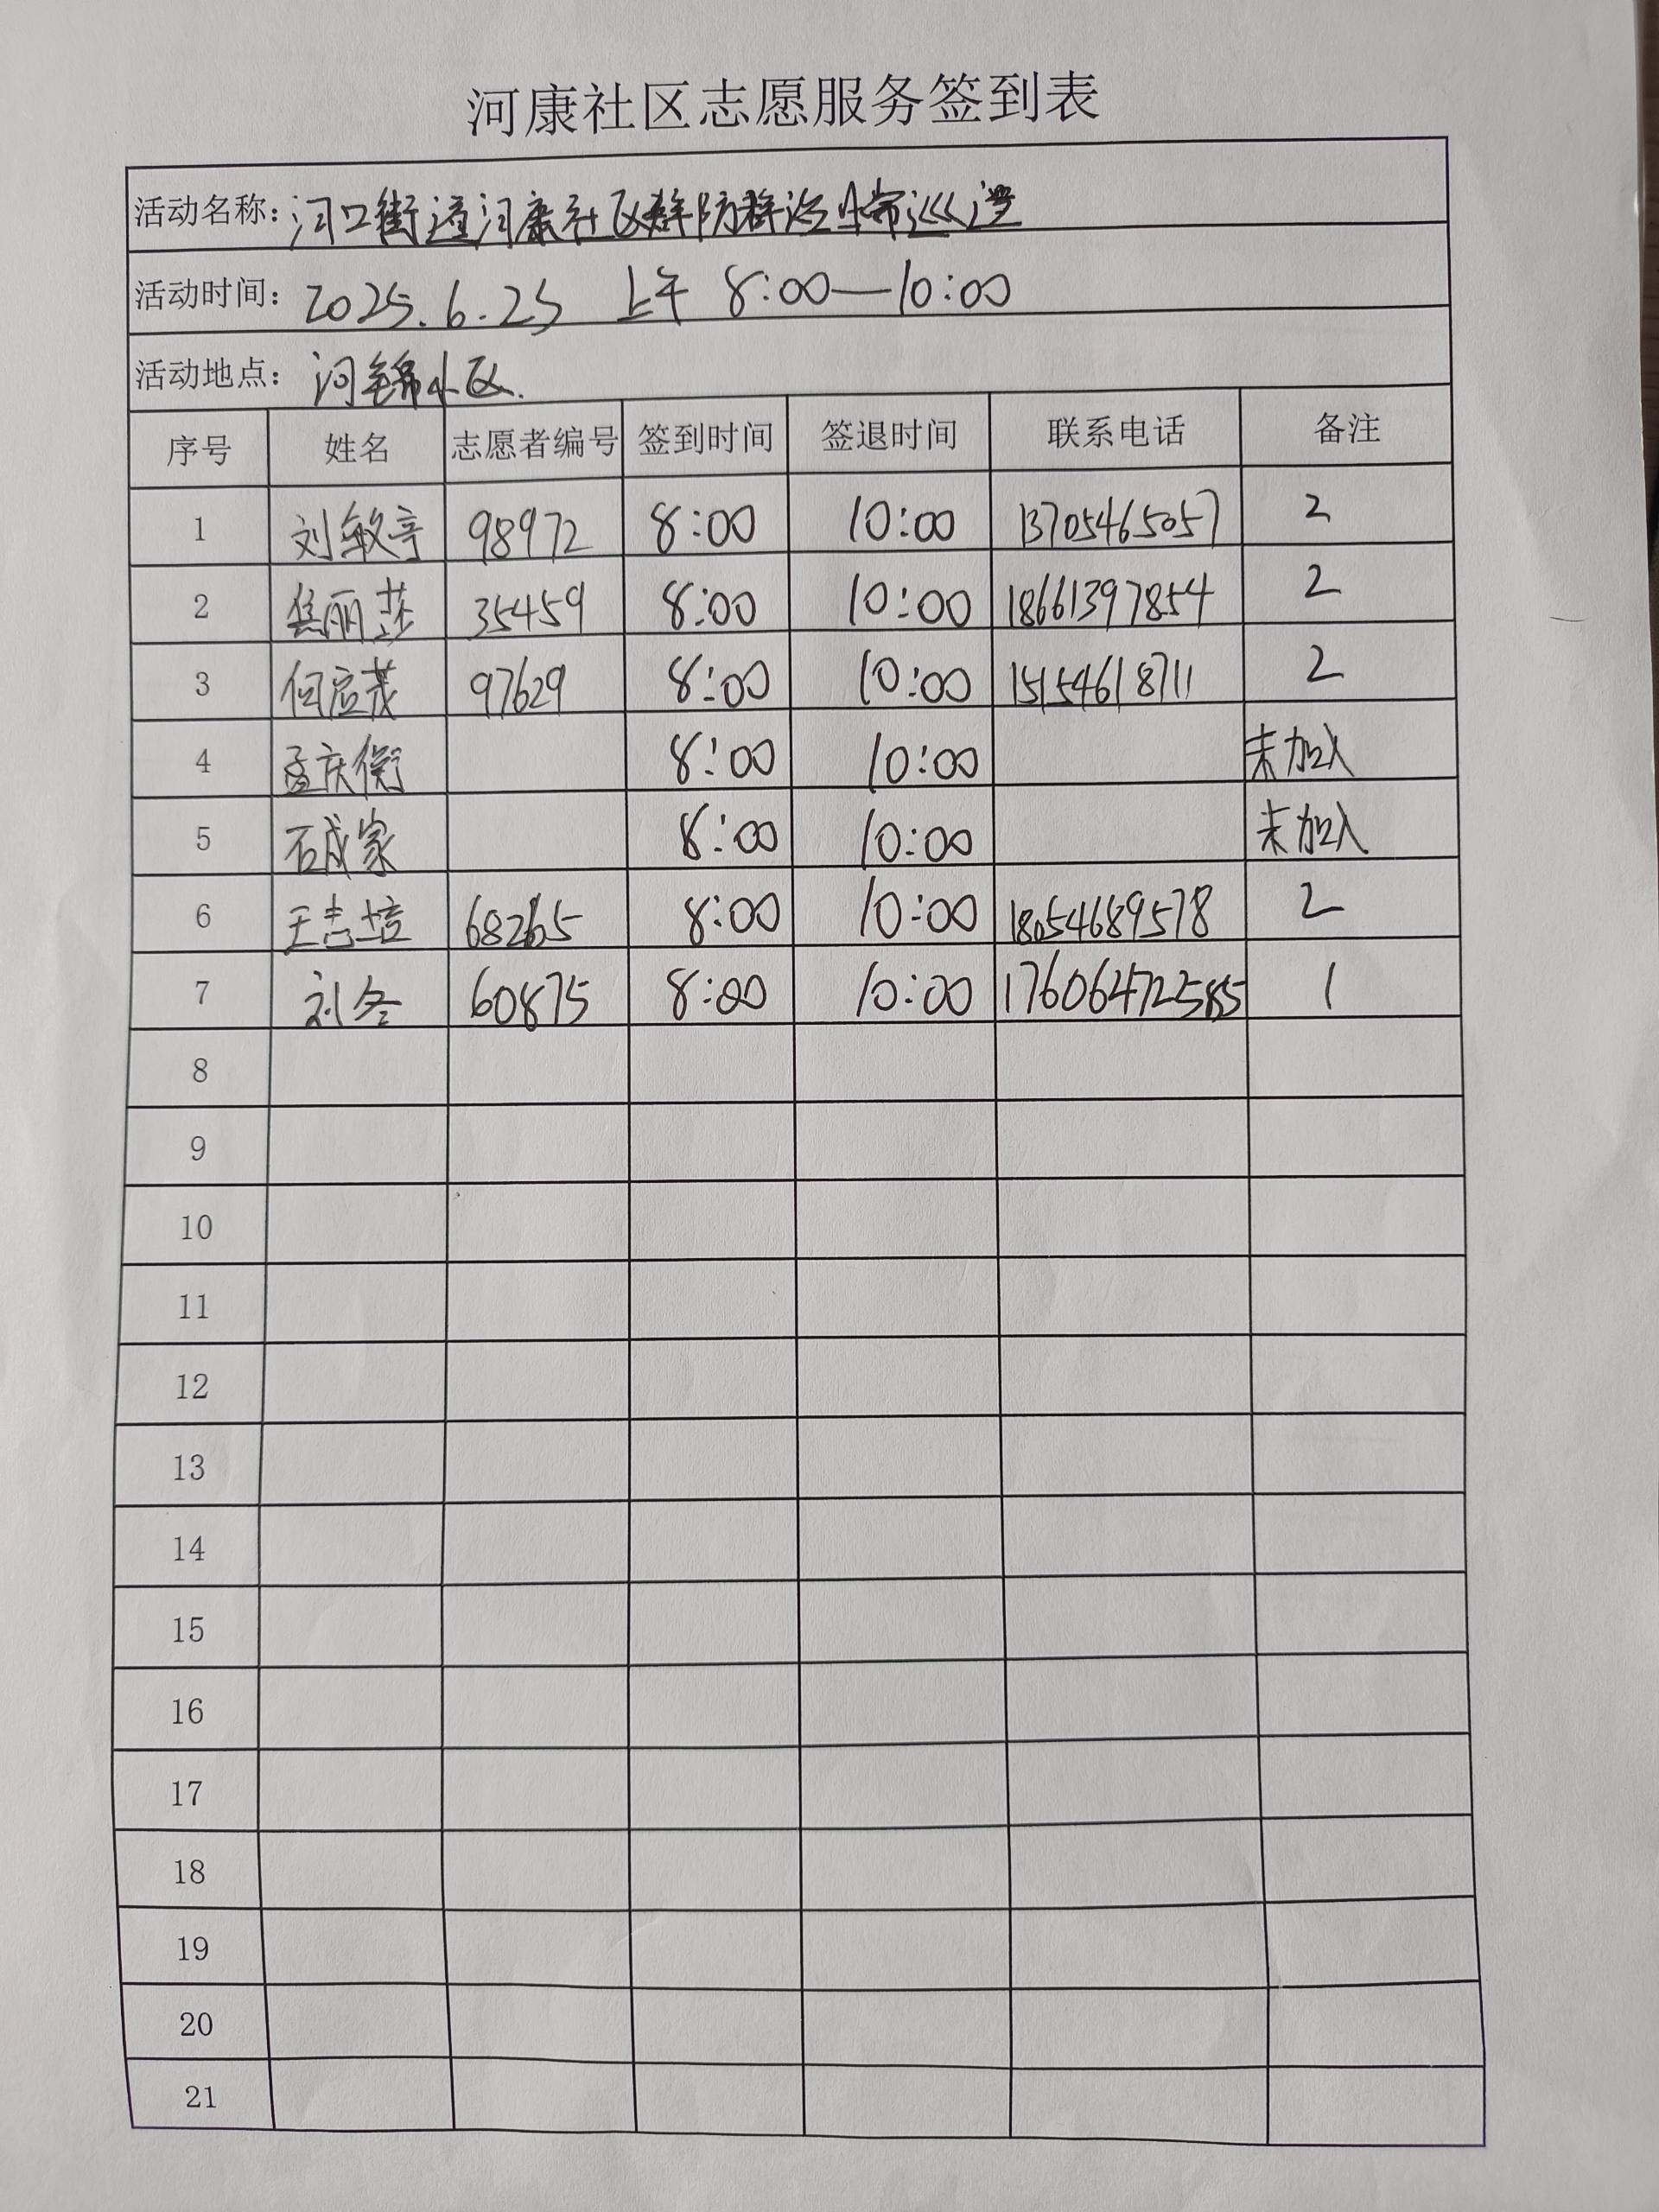 河康社区志愿服务签到表
活动名称: 河口街道河康社区群防群治日常巡逻
活动时间: 2025.6.25 上午 8:00—10:00
活动地点: 河锦小区.
序号 姓名 志愿者编号 签到时间 签退时间 联系电话 备注
1 刘敏亭 98972 8:00 10:00 13705465057 2
2 丽莎 35459 8:00 10:00 18661397854 2
3 何应茂 97629 8:00 10:00 15154618711 2
4 孟庆衡 8:00 10:00 未加入
5 石成家 8:00 10:00 未加入
6 王吉培 68265 8:00 10:00 18054689578 2
7 刘冬 60875 8:00 10:00 1
8
9
10
11
12
13
14
15
16
17
18
19
20
21